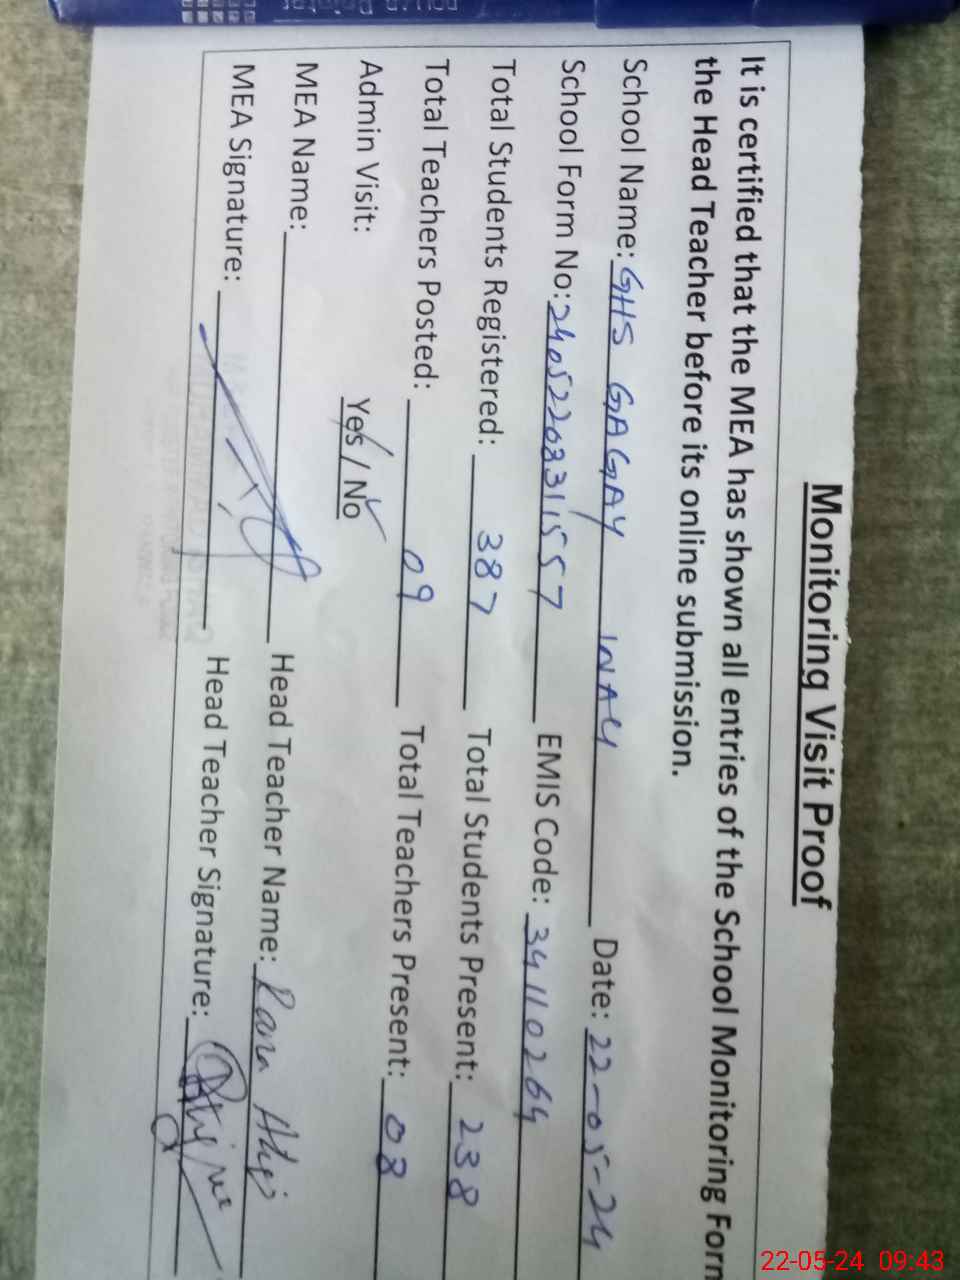 Monitoring Visit Proof
It is certified that the MEA has shown all entries of the School Monitoring Form
the Head Teacher before its online submission.
School Name: GHS GAGAY Date: 22-05-24
School Form No: 2405220831557 EMIS Code: 34110264
Total Students Registered: 387 Total Students Present: 238
Total Teachers Posted: 09 Total Teachers Present: 08
Admin Visit: Yes / No
MEA Name: Head Teacher Name: Rana
MEA Signature: Head Teacher Signature:
22-05-24 09:43